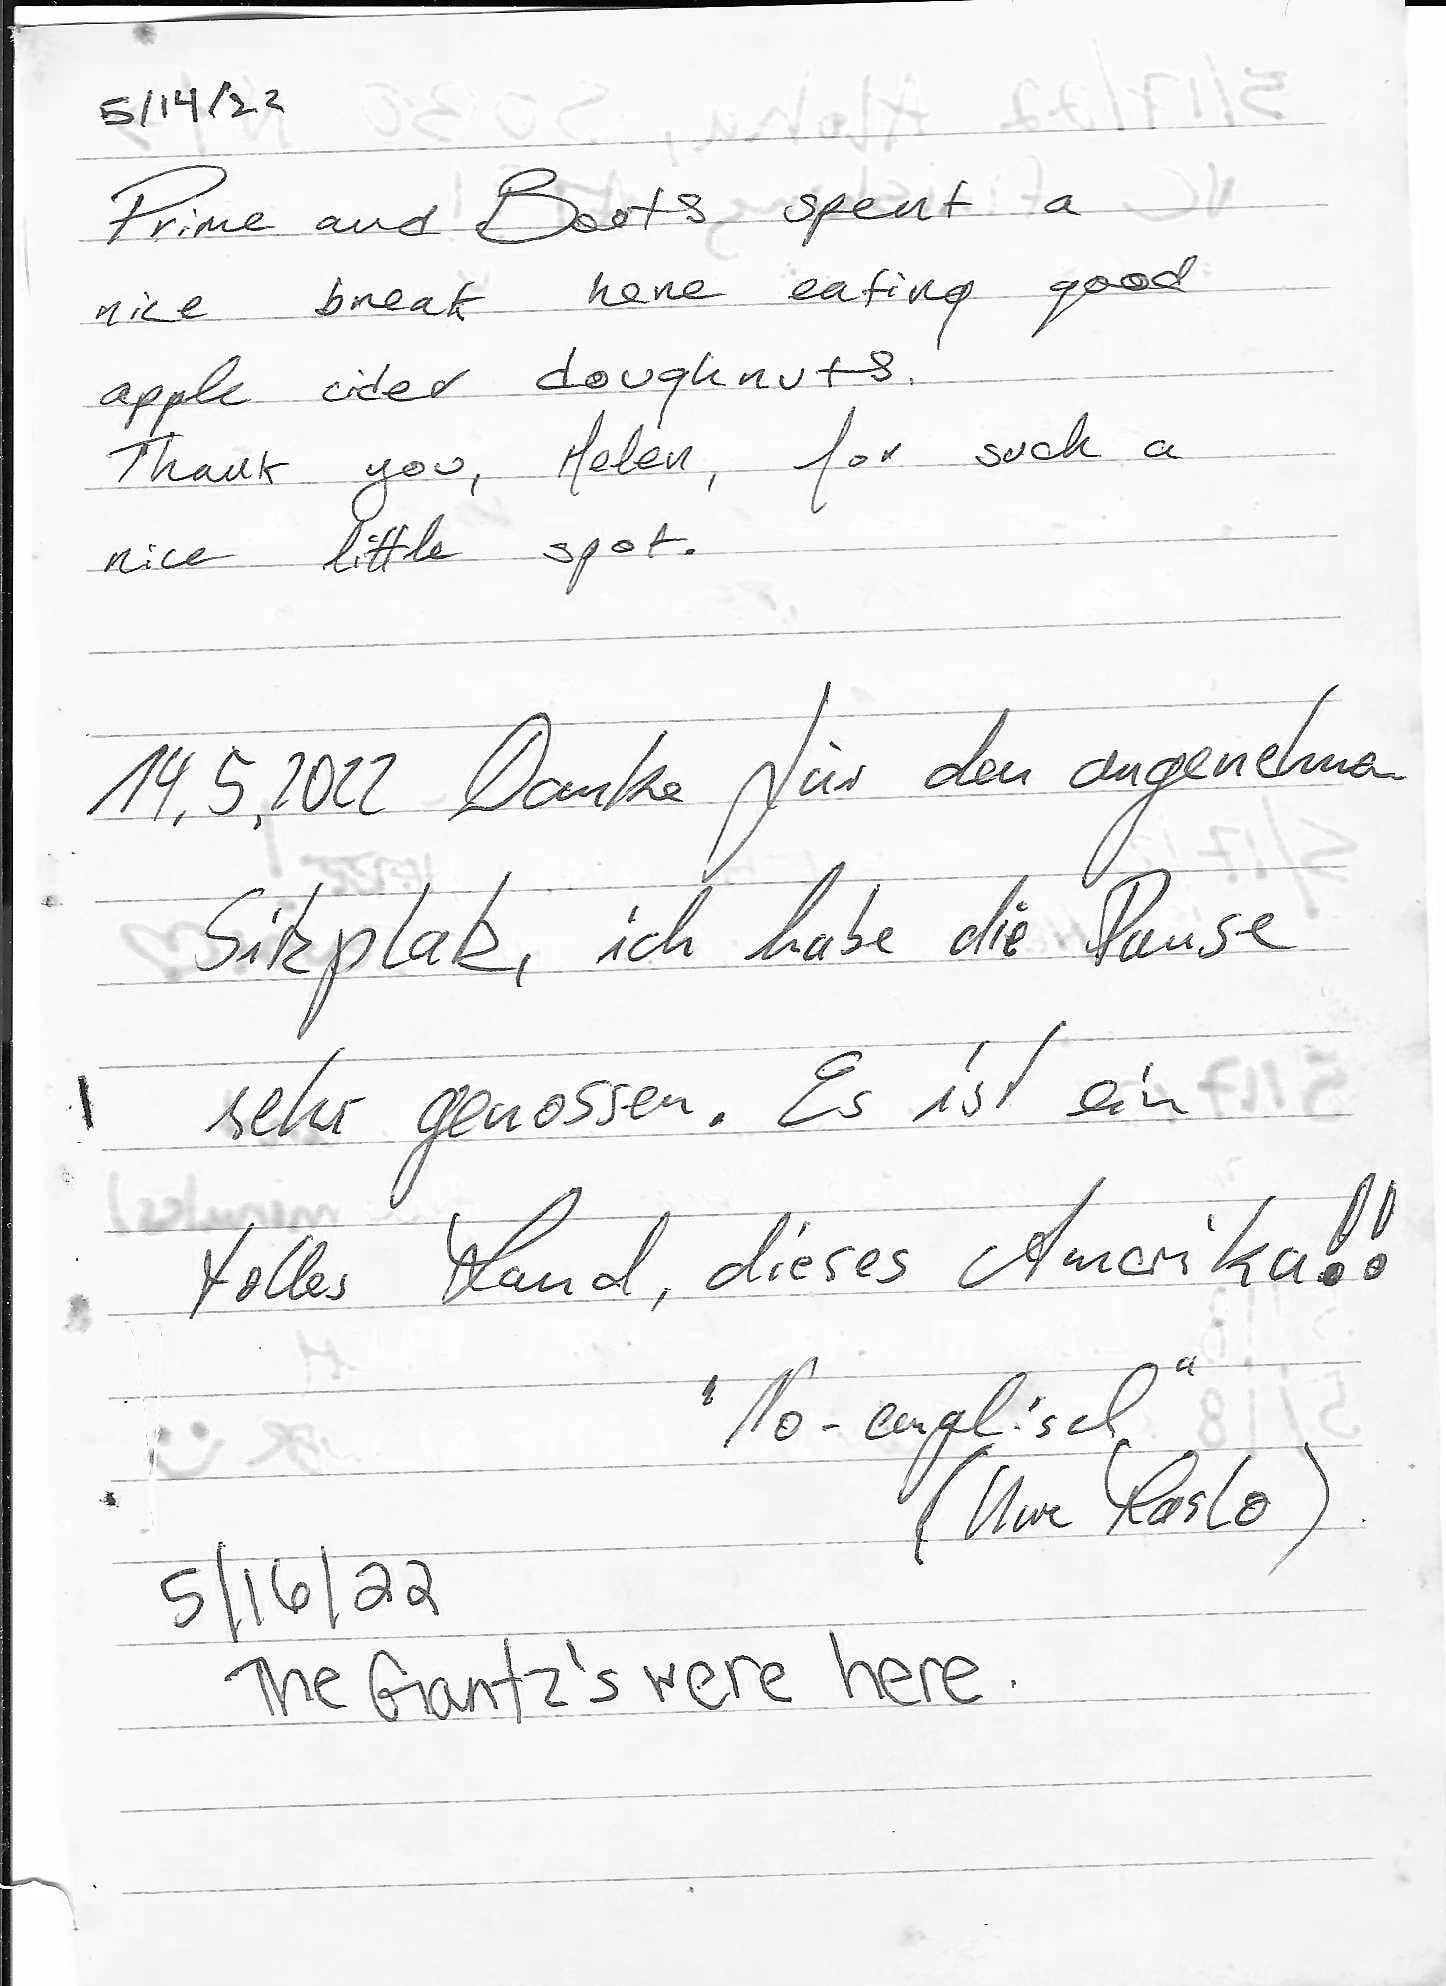 5/14/22
Prime and Boots spent a
nice break here eating good
apple cider doughnuts.
Thank you, Helen, for such a
nice little spot.
14.5.2022 Danke für den angenehmen
Sitzplatz, ich habe die Pause
sehr genossen. Es ist ein
tolles Land, dieses Amerika!!
"No-englisch"
(Uwe
5/16/22
The Gantz's were here.